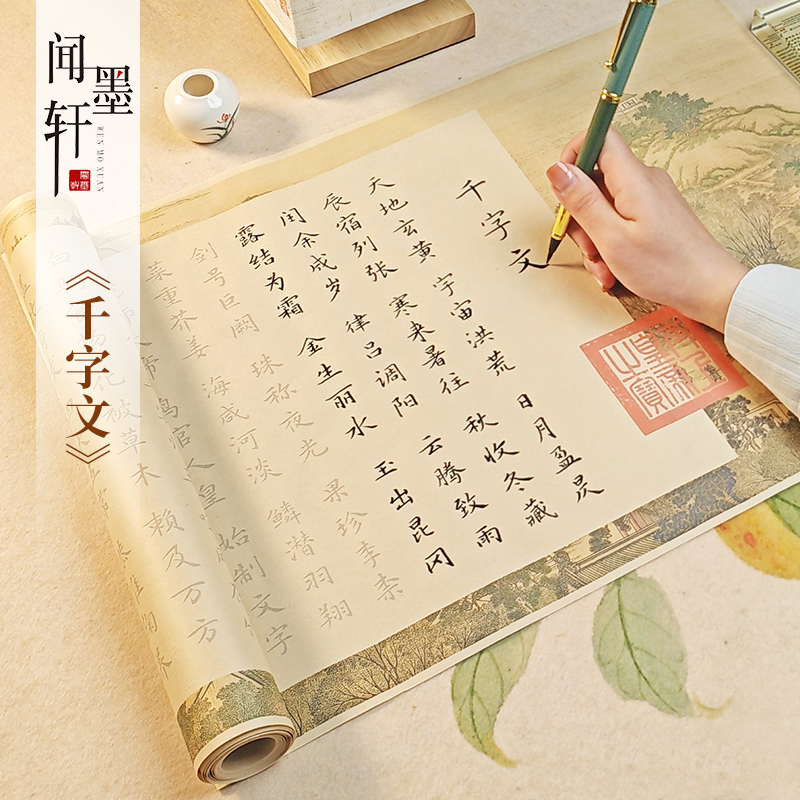 闻墨轩
WEN MO XUAN
《千字文》
千字文
天地玄黄 宇宙洪荒 日月盈昃
辰宿列张 寒来暑往 秋收冬藏
闰余成岁 律吕调阳 云腾致雨
露结为霜 金生丽水 玉出昆冈
剑号巨阙 珠称夜光 果珍李柰
菜重芥姜 海咸河淡 鳞潜羽翔
帝 鸟官人皇 始制文字
化被草木 赖及万方